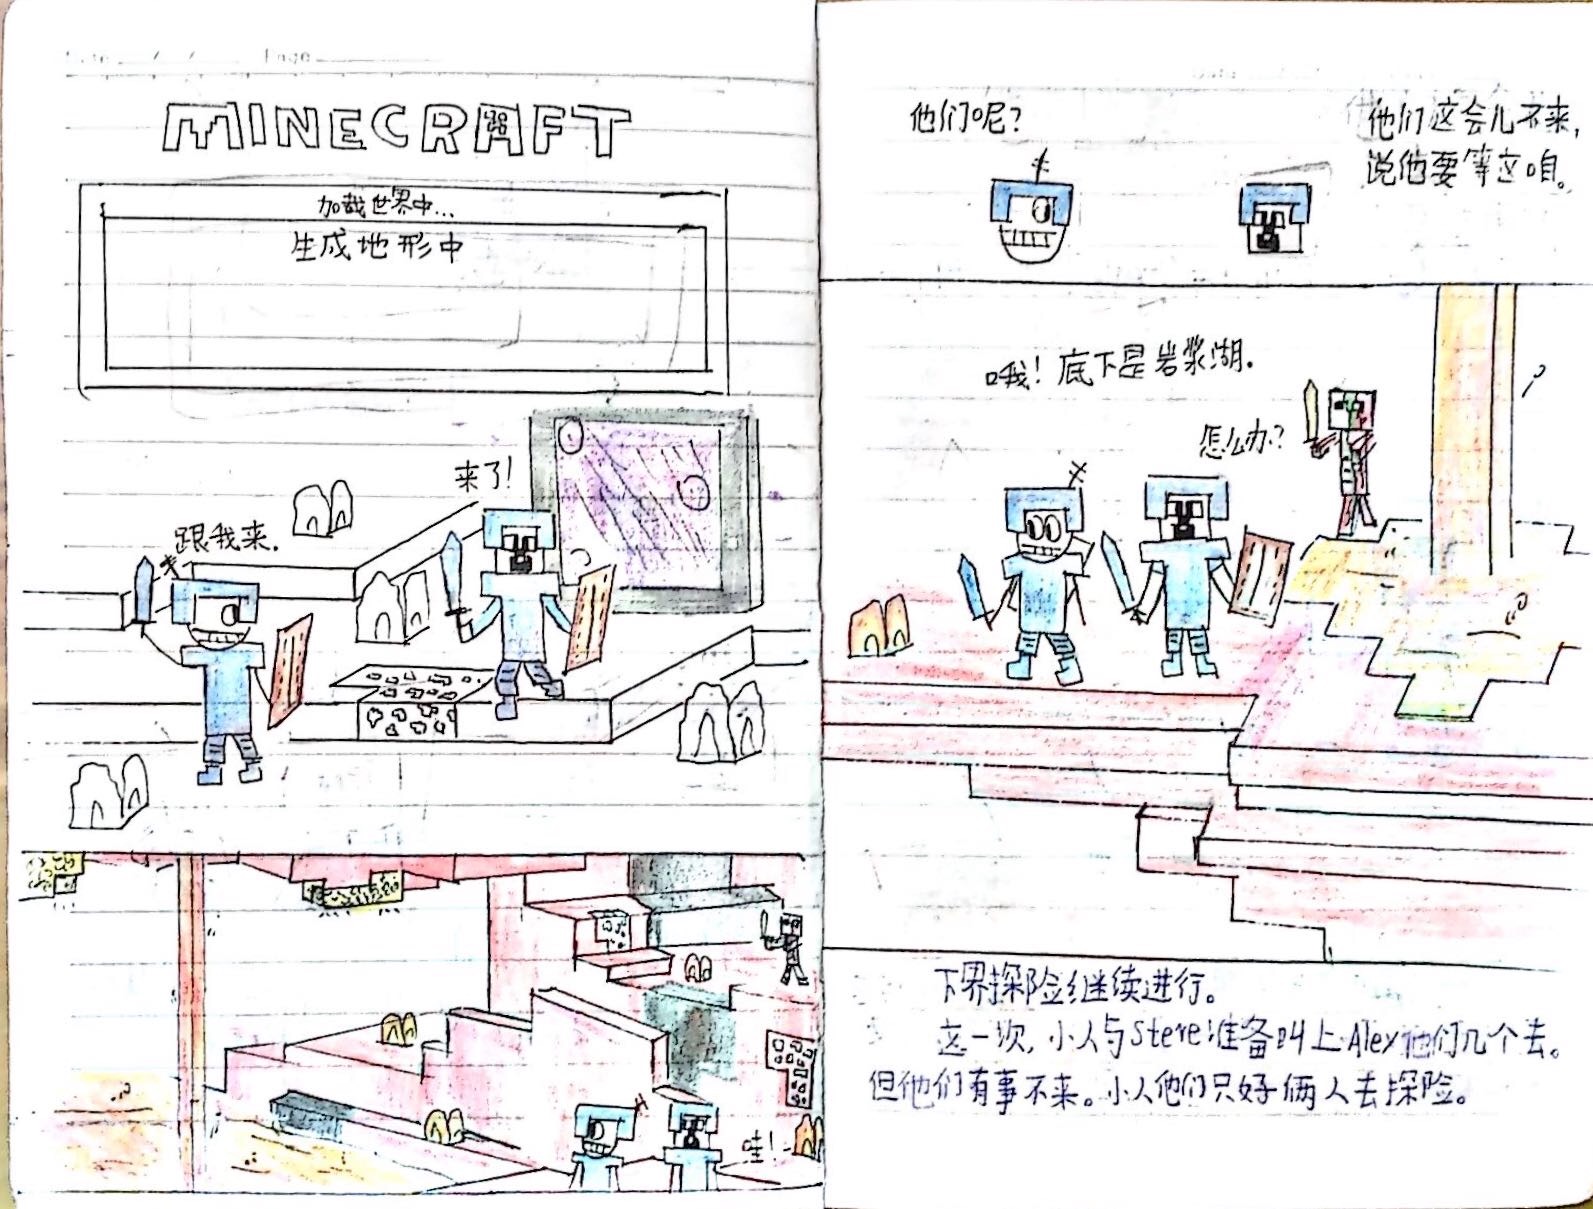 Date / / Page
MINECRAFT
加载世界中...
生成地形中
来了!
跟我来.
哇!
他们呢?
他们这会儿不来,
说他要等这咱。
哦! 底下是岩浆湖.
怎么办?
下界探险继续进行。
这一次, 小人与Steve准备叫上Alex他们几个去。
但他们有事不来。小人他们只好俩人去探险。